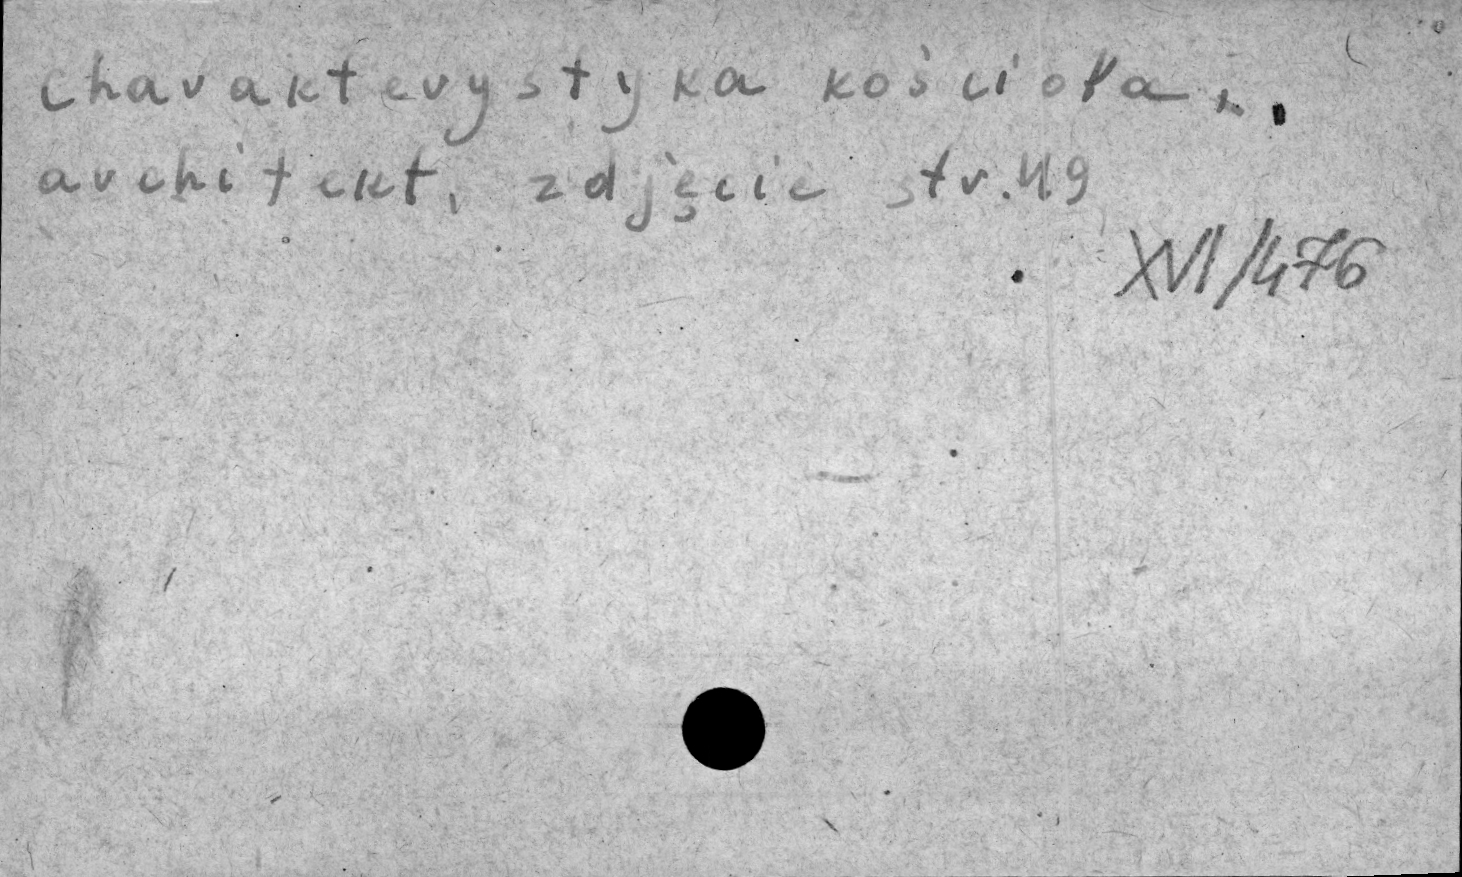 charakterystyka kościoła,
architekt, zdjęcie str. 49
XVI/476